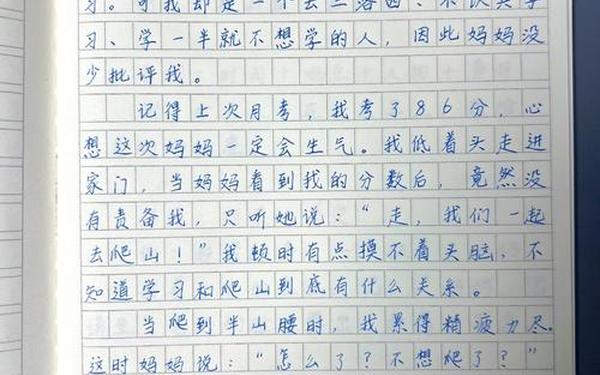 习。可我却是一个丢三落四、不认真学
习、学一半就不想学的人，因此妈妈没
少批评我。
记得上次月考，我考了86分，心
想这次妈妈一定会生气。我低着头走进
家门，当妈妈看到我的分数后，竟然没
有责备我，只听她说：“走，我们一起
去爬山！”我顿时有点摸不着头脑，不
知道学习和爬山到底有什么关系。
当爬到半山腰时，我累得精疲力尽。
这时妈妈说：“怎么了？不想爬了？”